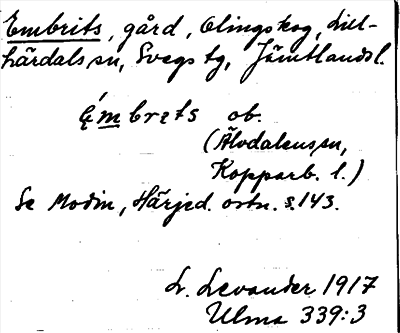 Embrits, gård, Olingskog, Lill-
härdals sn, Svegs tg, Jämtlands l.
ę́mbrets ob.
(Älvdalens sn,
Kopparb. l.)
Se Modin, Härjed. ortn. s. 143.
L. Levander 1917
Ulma 339:3